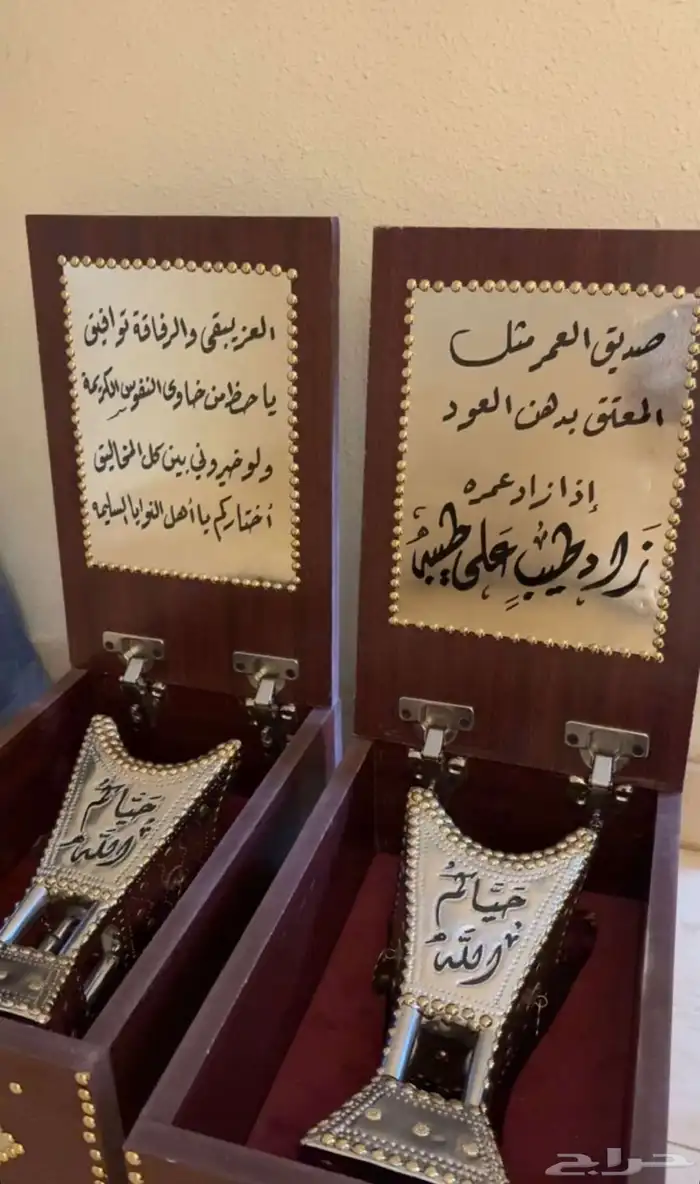 صديق العمر مثل
المعتق بدهن العود
إذا زاد عمره
زَاد طيبٍ عَلى طيبه
العز يبقى والرفاقة توافيق
يا حظ من خاوى النفوس الكريمة
ولو خيروني بين كل المخاليق
أختاركم يا أهل النوايا السليمه
حَيّاكم
الله
حَيّاكم
اللَّه
حراج